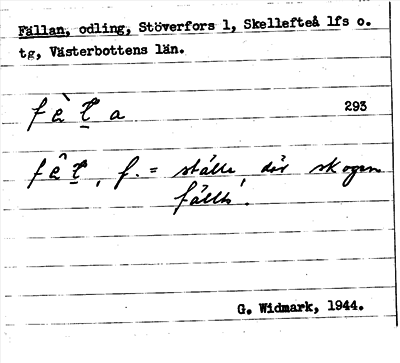 Fällan, odling, Stöverfors 1, Skellefteå lfs o.
tg, Västerbottens län.
293
f. = ställe, där skogen
fällts.
G. Widmark, 1944.